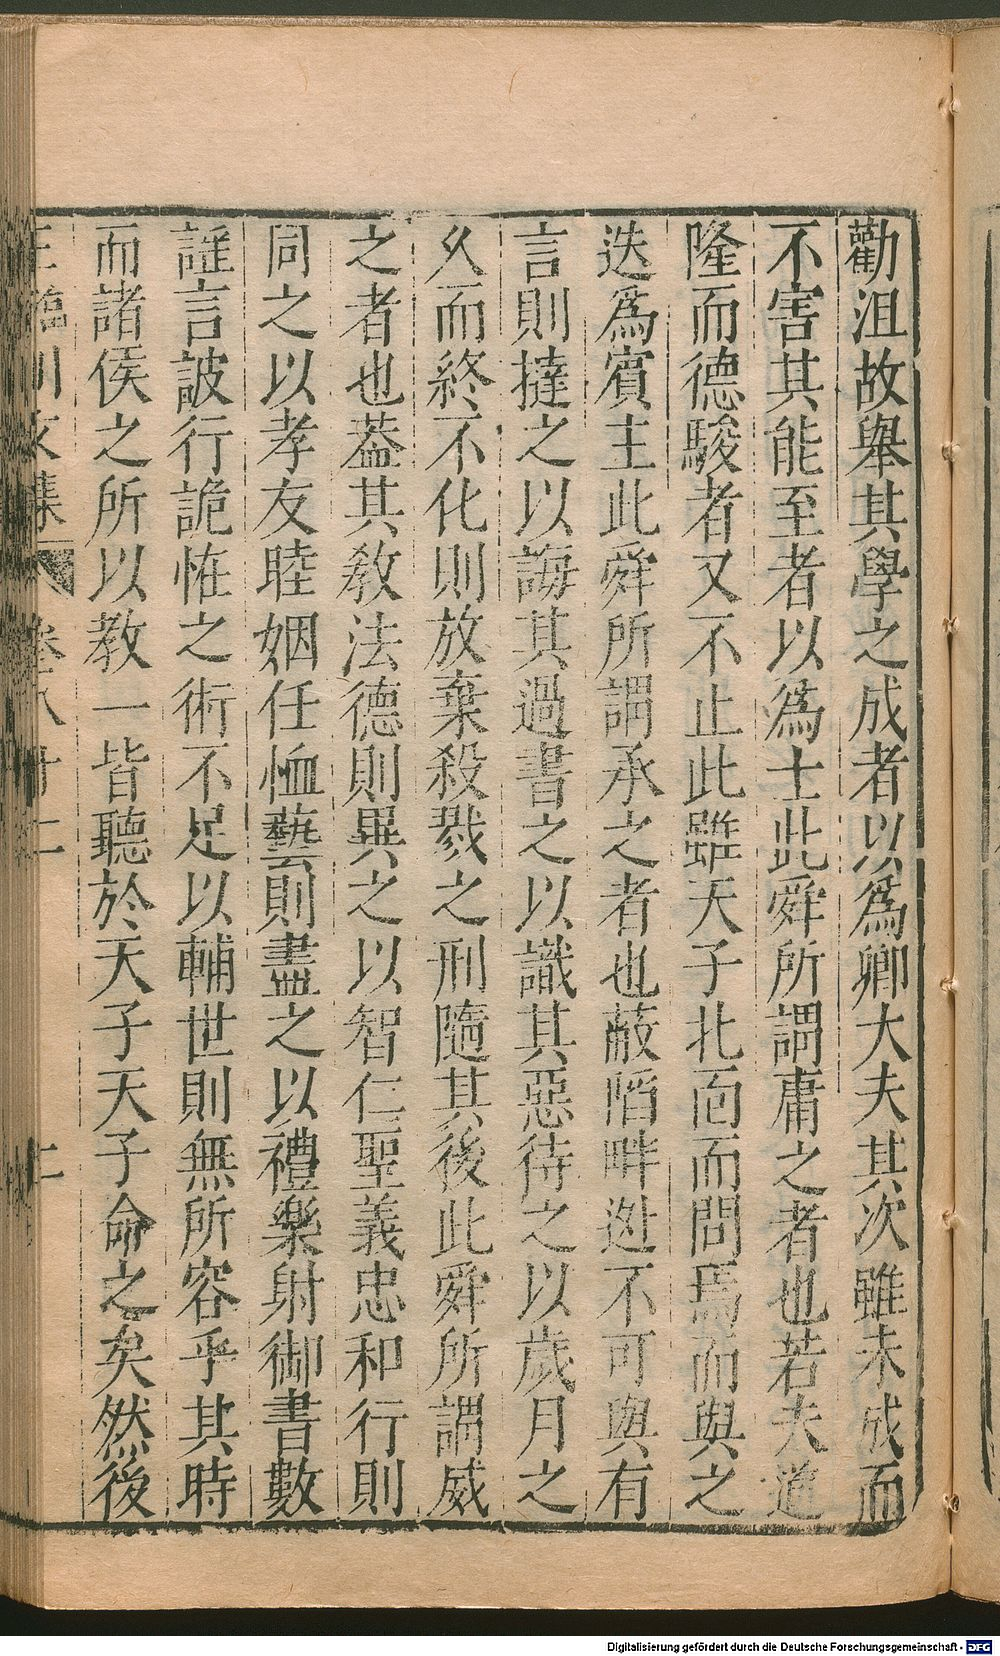 勸沮故舉其學之成者以爲卿大夫其次雖未成而
不害其能至者以爲士此舜所謂庸之者也若夫道
隆而德駿者又不止此雖天子北面而問焉而與之
迭爲賓主此舜所謂承之者也蔽陷畔逃不可與有
言則撻之以誨其過書之以識其惡待之以歲月之
久而終不化則放棄殺戮之刑隨其後此舜所謂威
之者也葢其敎法德則異之以智仁聖義忠和行則
同之以孝友睦姻任恤藝則盡之以禮樂射御書數
謹言詖行詭恠之術不足以輔世則無所容乎其時
而諸侯之所以教一皆聽於天子天子命之矣然後
王臨川文集 卷八十二 二
Digitalisierung gefördert durch die Deutsche Forschungsgemeinschaft - DFG